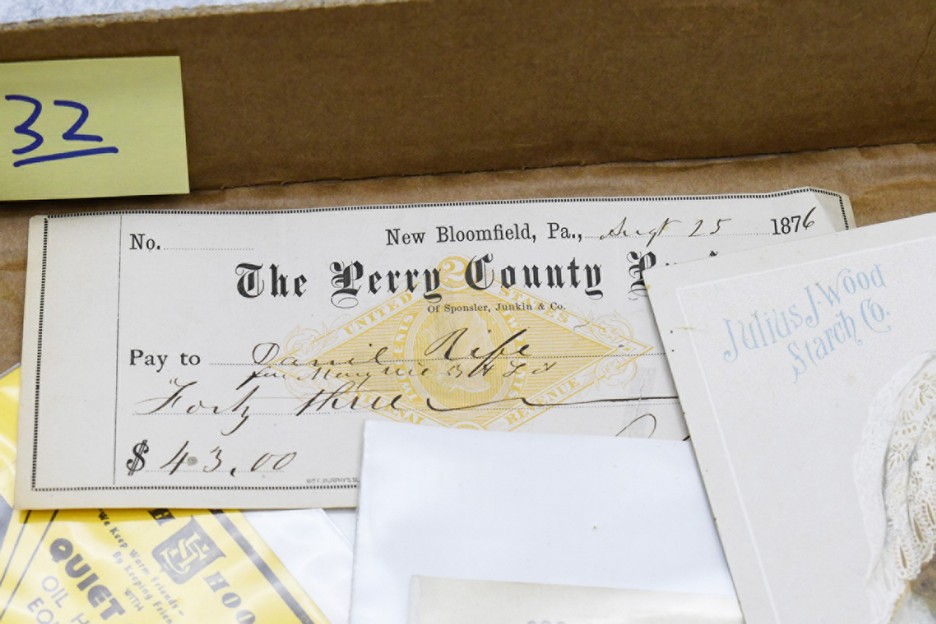 32
No.
New Bloomfield, Pa., Augt 25 1876
The Perry County
Of Sponsler, Junkin & Co.
UNITED STATES
Pay to Daniel Rife
Forty three
INTERNAL REVENUE
$ 43.00
Julius J. Wood
Starch Co.
"We Keep Warm Friends -
By Keeping
WITH
QUIET
OIL